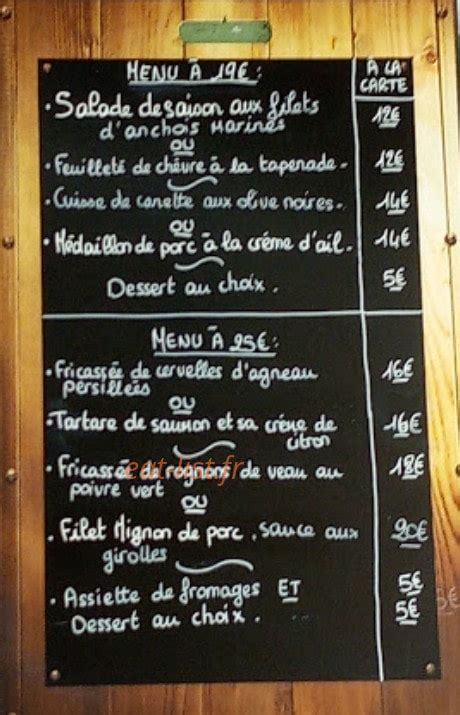 MENU À 19€ :
À LA
CARTE
• Salade de saison aux filets
d'anchois marinés 12€
OU
• Feuilleté de chèvre à la tapenade - 12€
• Cuisse de canette aux olive noires - 14€
OU
• Médaillon de porc à la crème d'ail - 14€
Dessert au choix . 5€
MENU À 25€ :
• Fricassée de cervelles d'agneau 16€
persillées
OU
• Tartare de saumon et sa crème de 16€
citron
• Fricassée de rognons de veau au 18€
poivre vert
eat-list.fr
OU
• Filet Mignon de porc , sauce aux 20€
girolles
• Assiette de fromages ET 5€
Dessert au choix . 5€